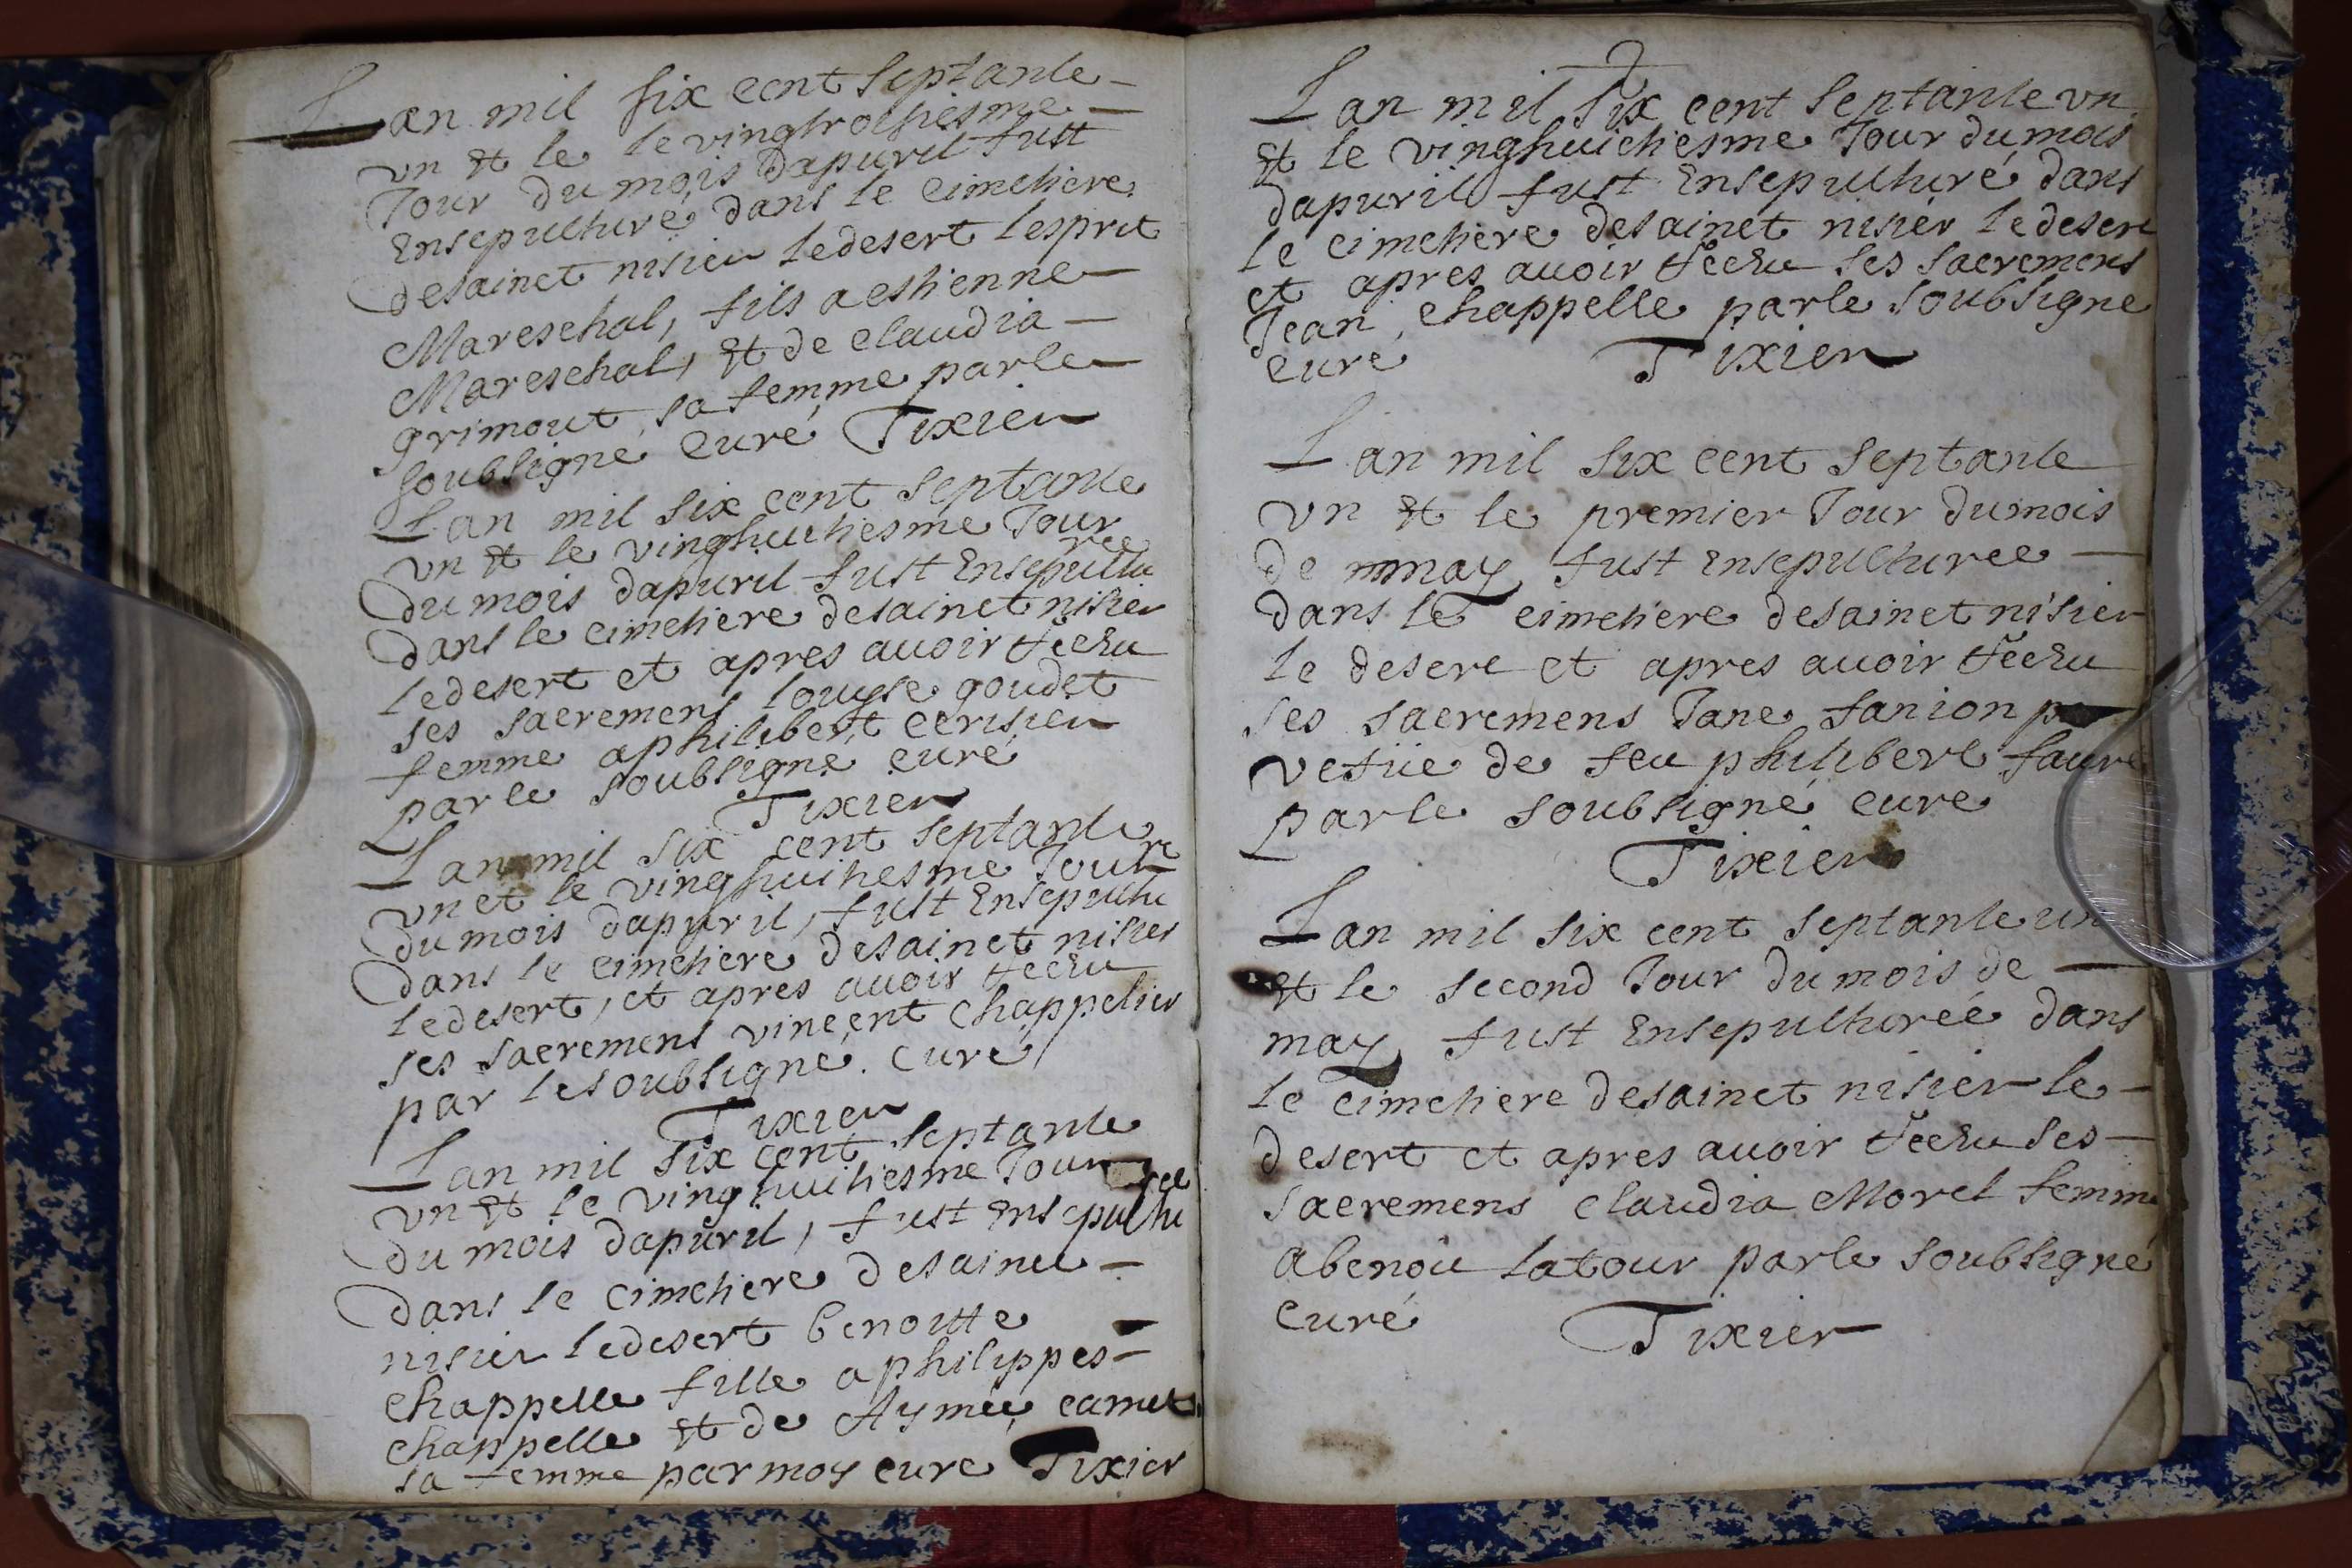 Lan mil six cent septante
vn et le le vingtroisiesme
Jour du mois dapuril fust
Ensepulturé dans le cimetiere
desainct nisier ledesert lesprit
Mareschal, fils a estienne
Mareschal, et de claudia
grimout sa femme parle
soubsigné curé Tixier
Lan mil six cent septante
vn et le vinghuitiesme Jour
du mois dapuril fust Ensepultu
ree
dans le cimetiere desainct nisier
ledesert et apres auoir receu
ses sacremens louyse goudet
femme aphilibert cerisier
parle soubsigné curé
Tixier
Lan mil six cent septante
vn et le vinghuitiesme Jour
du mois dapuril, fust Ensepultu
re
dans le cimetiere desainct nisier
ledesert, et apres auoir receu
ses sacremens vincent chappelier
par lesoubsigné. curé
Tixier
Lan mil six cent septante
vn et le vinghuitiesme Jour
du mois dapuril, fust ensepultu
ree
dans le cimetiere desainct
nisier ledesert benoitte
chappelle fille aphilippes
chappelle et de Aymée camet
sa femme par moy curé Tixier
Lan mil six cent septante vn
et le vinghuictiesme Jour dumois
dapuril fust Ensepulturé dans
le cimetiere desainct nisier ledesert
et apres auoir receu ses sacremens
Jean chappelle parle soubsigne
curé Tixier
Lan mil six cent septante
vn et le premier Jour dumois
de may fust ensepulturee
dans le cimetiere desainct nisier
le desert et apres auoir receu
ses sacremens Jane fanion
vefüe de feu philibert faure
parle soubsigné cure
Tixier
Lan mil six cent septante un
et le second Jour du mois de
may fust Ensepulturée dans
le cimetiere desainct nisier le
desert et apres auoir receu ses
sacremens claudia Morel femme
abenoi latour parle soubsigné
curé Tixier